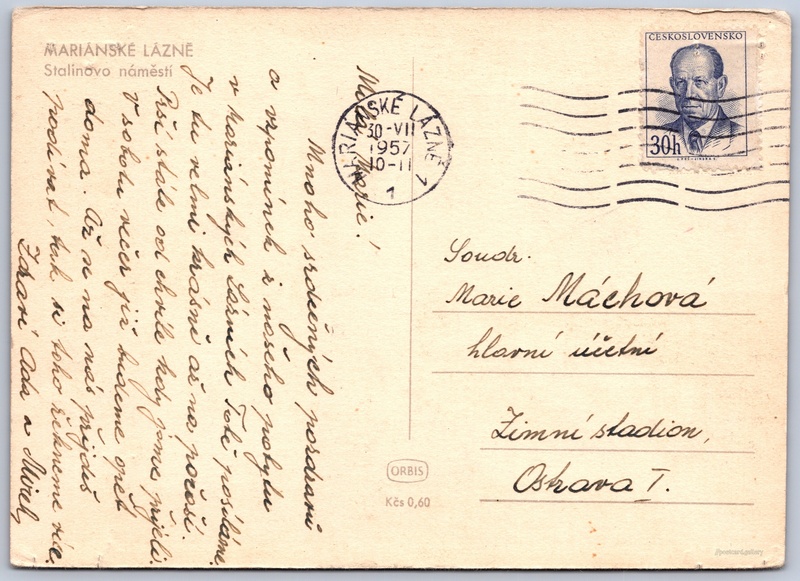 MARIÁNSKÉ LÁZNĚ
Stalínovo náměstí
Marie!
Mnoho srdečných pozdravů
a vzpomínek z našeho pobytu
v Mariánských Lázních Tobě posíláme.
Je tu velmi krásně až na počasí.
Prší stále od chvíle kdy jsme přijeli.
V sobotu večer již budeme opět
doma. Až se na nás přijdeš
podívat, tak si toho řekneme více.
Zdraví Ada a
MARIÁNSKÉ LÁZNĚ 1
30-VII
1957
10-11
1
ČESKOSLOVENSKO
30h
Soudr.
Marie Máchová
hlavní účetní
Zimní stadion,
Ostrava I.
ORBIS
Kčs 0,60